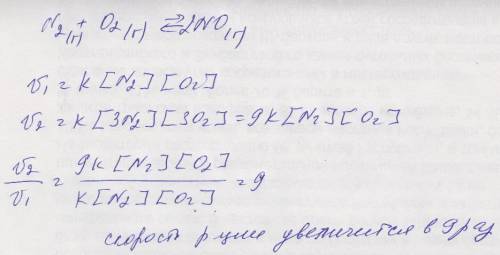 N₂(г) + O₂(г) ⇄ 2NO(г)
v₁ = k [N₂] [O₂]
v₂ = k [3N₂] [3O₂] = 9k [N₂] [O₂]
v₂/v₁ = 9k [N₂] [O₂] / k [N₂] [O₂] = 9
скорость р-ции увеличится в 9 раз